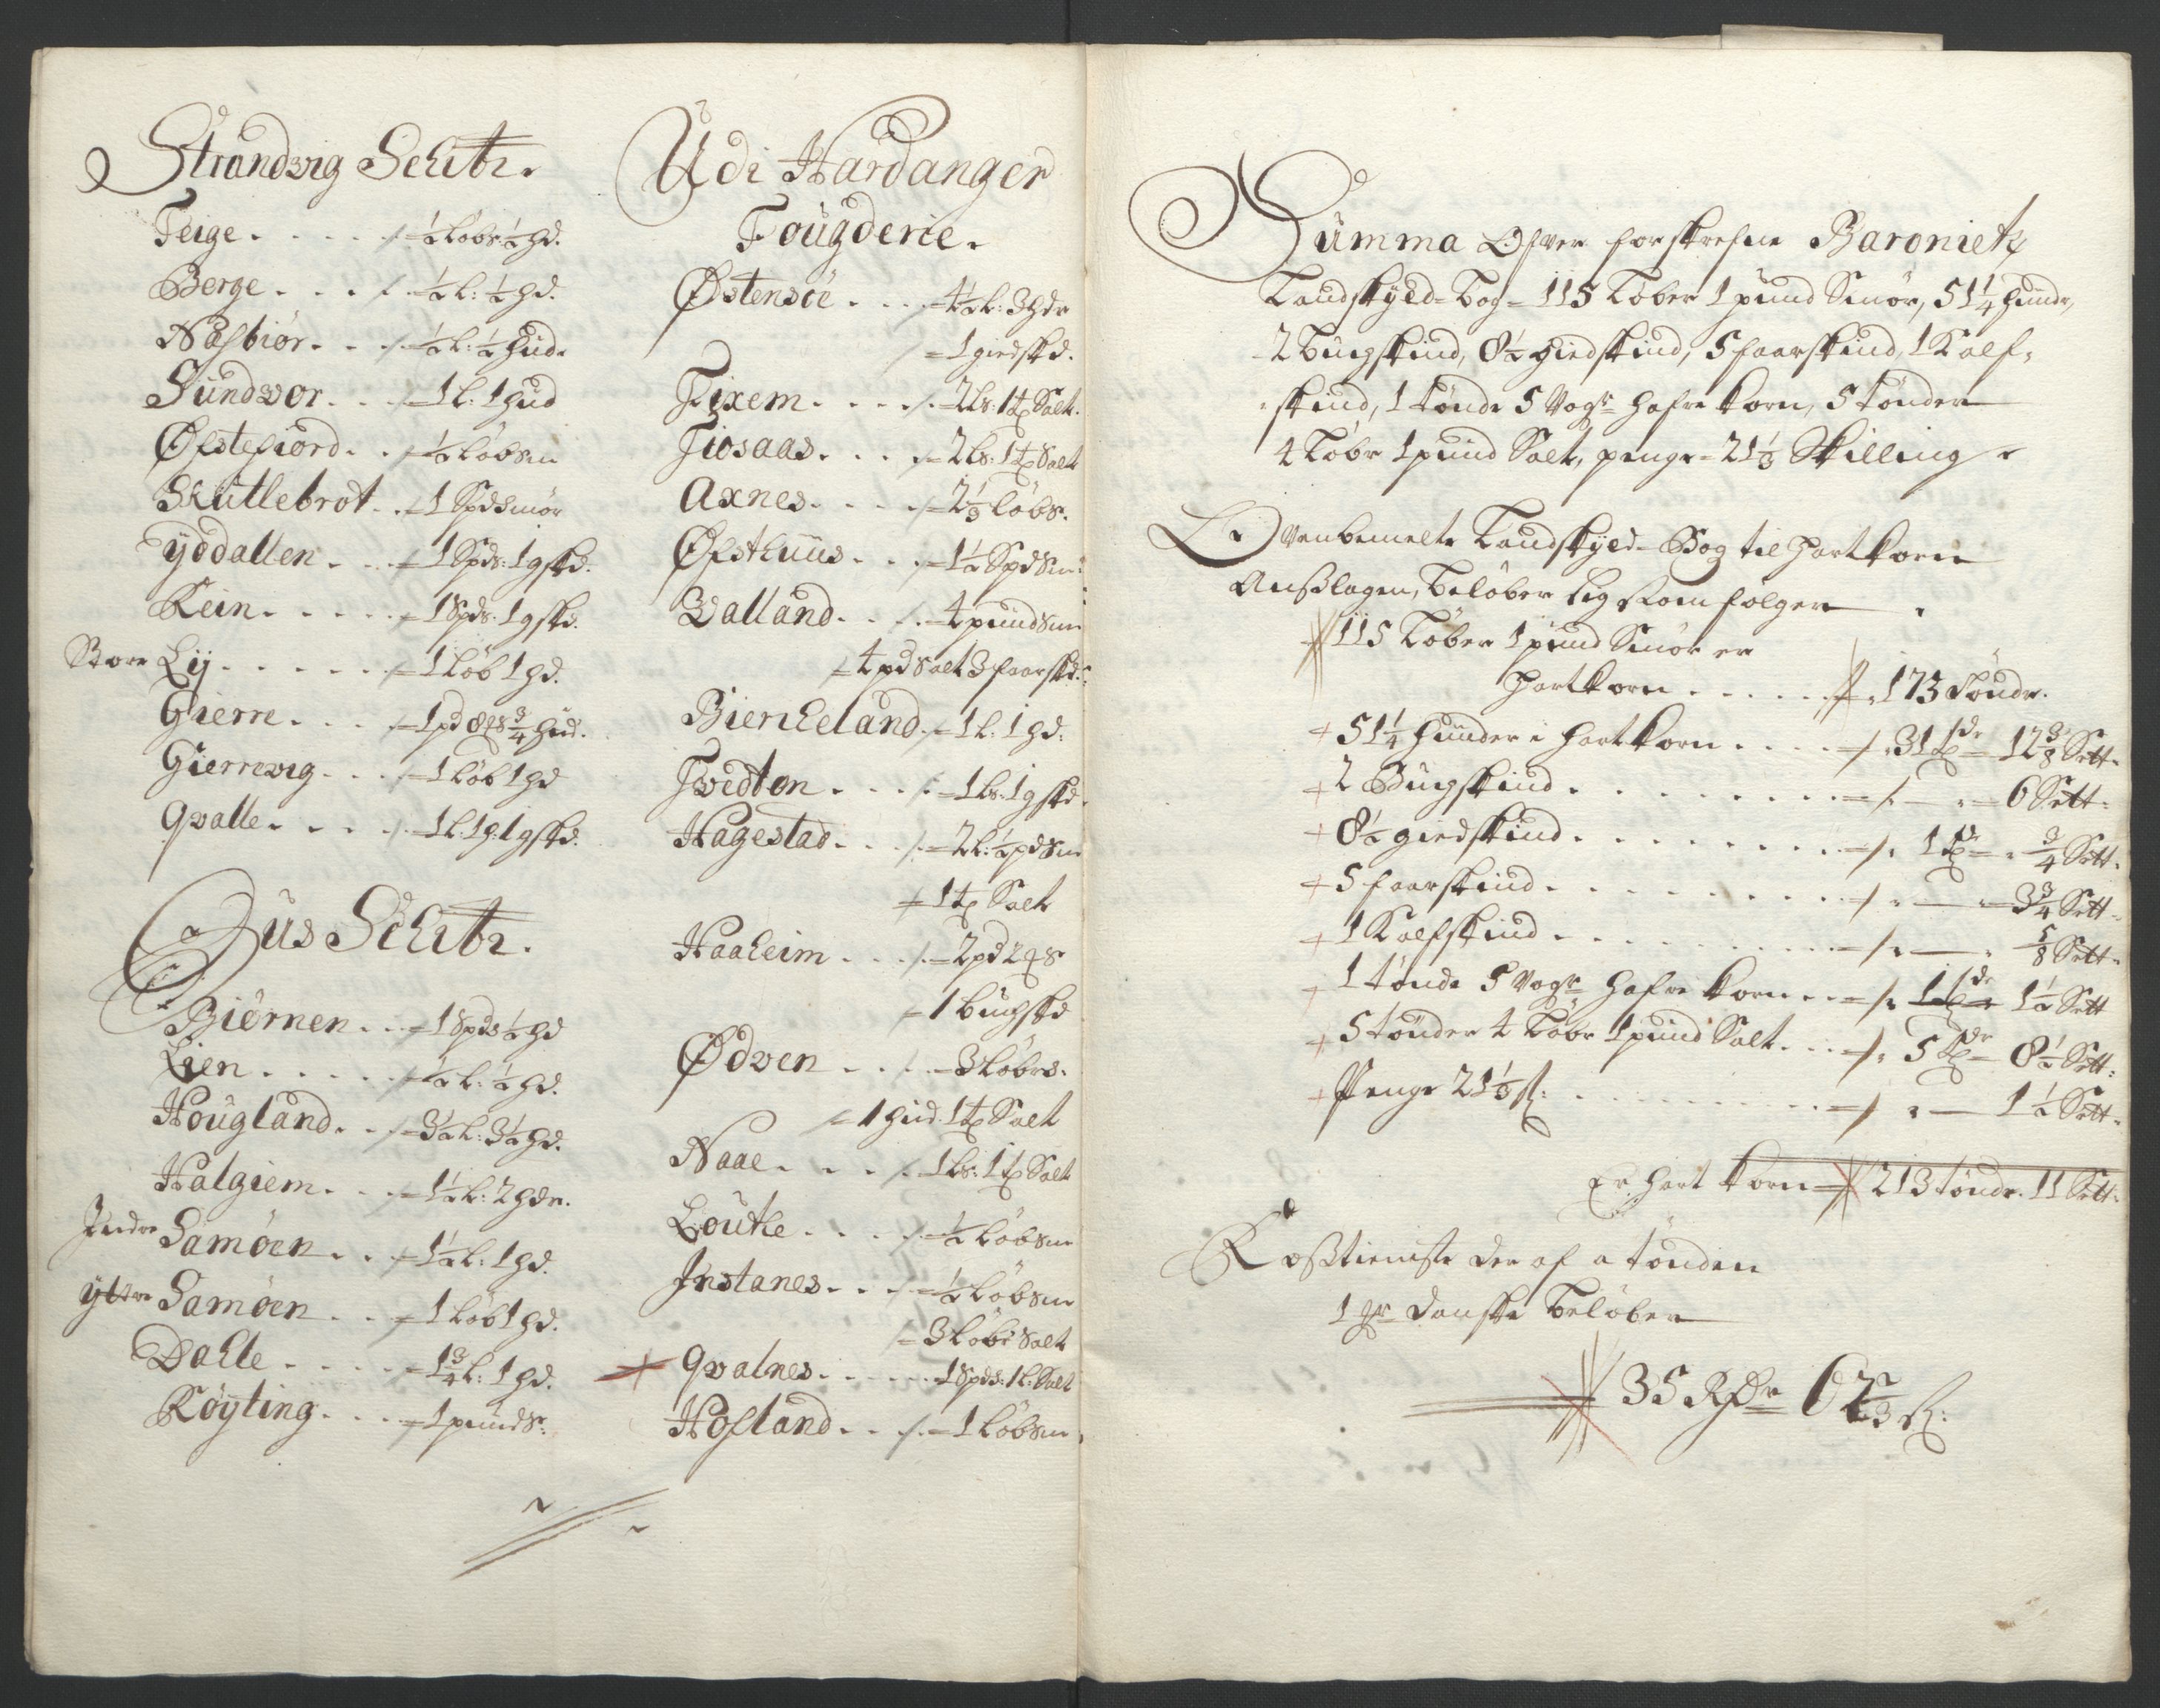 Strandwig Schibr.
Teige . . . . /. ½ Løbs: ½ hd.
Berge . . . /. ½ L: ½ hd.
Nasbiør . . /. ½ L: ½ hud.
Sundwor . . /. 1 L: 1 hud
Øfstefiord . . /. ½ Løbsm
Skutlebrot . . 1 Spd Smør
Yddallen . . . 1 Spds: 1 gskd.
Rein . . . . . 1 Spds. 1 gskd.
Store Lij . . . . . . 1 Løb 1 hd.
Gierre . . . 1 pd 8 ¾ hud.
Gierrevig . . . 1 Løb 1 hd
Qvalle . . . . 1 L. 1 h. 1 gskd.
Ous Schibr.
Biørnen . . . 1 Spds ½ hd
Lien . . . . . ½ L. ½ hd.
Hougland . . 3½ L: 3½ hd.
Halgiem . . . 1½ L: 2 hdr.
Indre Samøen . . . 1½ L: 1 hd.
Yttre Samøen . . . 1 Løb 1 hd.
Dahle . . . . . 1¾ L: 1 hd.
Røyting . . . . 1 punds:
Udi Hardanger
Fougderie.
Østensøe . . . 4½ L: 3 hdr
1 giedskd.
Fixem . . . . 2 Ls: 1 tp Salt.
Fiosaas . . . . 2 Ls: 1 tp Salt
Axnes . . . . 2⅓ Løbs.
Øfsthuus . . . 1½ Spd Sm:
Walland . . . 4 pund Sm
4 pd Salt 3 faarskd.
Bierkeland . 1 L: 1 hd:
Tvedton . . . 1 Ls: 1 gskd.
Hagestad . . . 2 L: ½ pd Sm
1 tp Salt
Haaheim . . . 2 pd
1 bugskd
Ødven . . . . 3 Løbrs.
1 hud. 1 tp Salt
Naae . . . . 1 Ls: 1 tp Salt
Loutke . . . . ½ Løbsm
Instanes . . . ½ Løbsm
3 Løbr Salt
Qvalnes . . . . . 1 Spds: 1 L. Salt
Hofland . . . 1 Løbsm
Summa Ofver forskrefne Baroniets
Landskyld-Bog = 115 Løber 1 pund Smør, 51¼ hunde,
2 Bugskind, 8½ giedskind, 5 faarskind, 1 Kalf-
skind, 1 tønde 5 Vogr hafre korn, 5 tønder
4 Løbr 1 pund Salt, penge = 21⅓ Skilling
Ovenbemelte Landskyld-Bog til hartkorn
Anslagen, beløber sig som følger
115 Løber 1 pund Smør er
hartkorn . . . . . 173 Tøndr.
51¼ hunder i hartkorn . . . . 31 tdr 12⅜ Sett.
2 Bugskind . . . . . . . . . 6 Sett:
8½ giedskind . . . . . . . . 1 td ¾ Sett.
5 faarskind . . . . . . . . . 3¾ Sett.
1 Kalfskind . . . . . . . . . ⅝ Sett.
1 tønde 5 Vogr hafre korn . . . 1 tdr 1½ Sett
5 tønder 4 Løbr 1 pund Salt . . . 5 tdr 8½ Sett:
Penge 21⅓ s: . . . . . . . . . 1½ Sett.
Er hart korn 213 tøndr. 11 Sett.
Rosstieniste der af a tønden
1 danske beløber
35 Rdr 6 s: